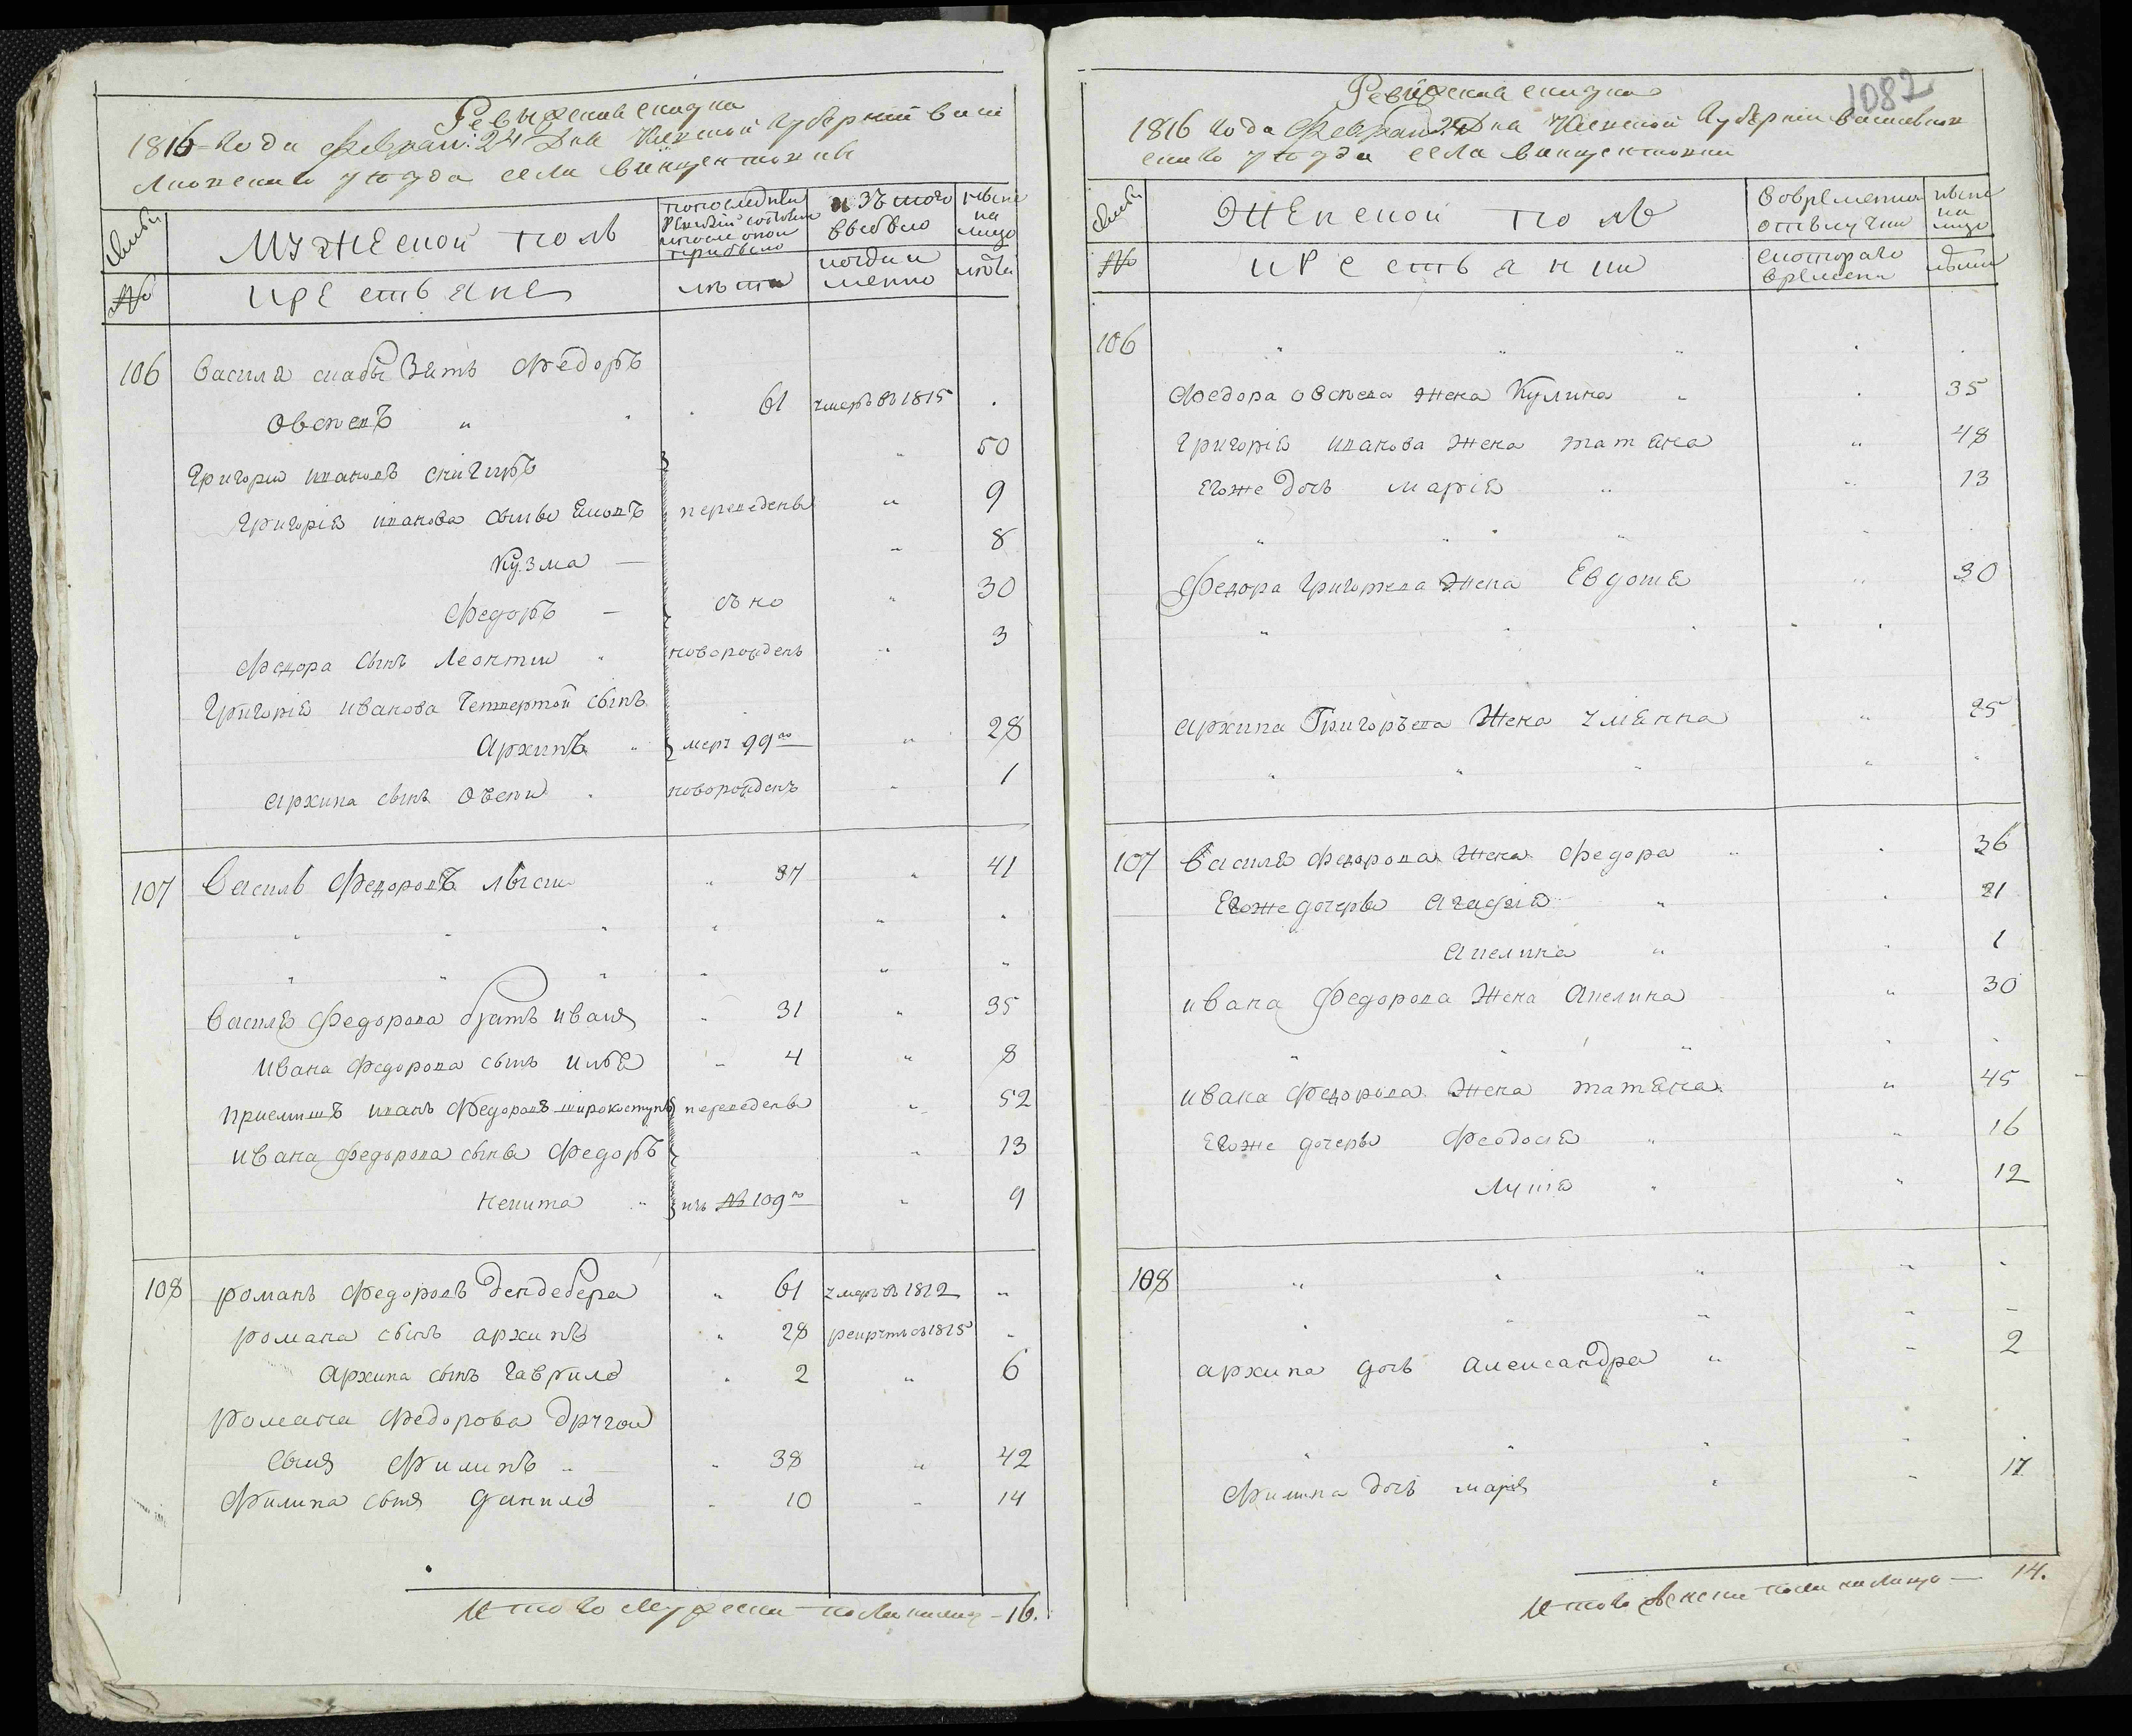 Ревизская сказка
1816 года Феврал: 24 Дня Киевской Губернии Васи
лковскаго уезда села Винцентовки
Семьи
Мужеской полъ
по последней ревизии состояло и после оной прибыло
изъ того выбыло
ныне на лицо
№
крестьяне
лета
когда именно
лета
106 Василя слабы Зять Федоръ
Овсеевъ " 61 умеръ въ 1815 .
Григорий Ивановъ Снигиръ " 50
Григорія Иванова сыны Яковъ переведены " 9
Кузма — " 8
Федоръ — съ № " 30
Федора сынъ Леонтий новорожденъ " 3
Григорія Иванова Четвертой сынъ
Архипъ " 99го " 28
Архипа сынъ новорожденъ " 1
107 Василь Федоровъ Лысый " 37 " 41
Василя Федорова братъ Иванъ " 31 " 35
Ивана Федорова сынъ Илья " 4 " 8
Приемышъ Иванъ Федоровъ Широкоступъ переведены " 52
Ивана Федорова сыны Федоръ " 13
Никита " изъ № 109го " 9
108 Романъ Федоровъ Дендебера " 61 умеръ въ 1812 "
Романа сынъ Архипъ " 28 рекрутъ съ 1815 "
Архипа сынъ Гаврило " 2 " 6
Романа Федорова другой
сынъ Филипъ " 38 " 42
Филипа сынъ Данило " 10 " 14
Итого Мужеска пола на лицо – 16.
1082
Ревизская сказка
1816 года Феврал: 24 Дня Киевской Губернии Василков
скаго уезда села Винцентовки
Семьи
Женской полъ
Во временной отлучки
ныне на лицо
№
крестьянки
с котораго времени
лета
106 " " " . .
Федора Овсеева жена Кулина " . 35
Григорія Иванова жена Татяна " 48
Егоже дочь Марія " " 13
Федора Григорьева жена Евдокия " 30
Архипа Григоръева жена Улянна " 25
107 Василя Федорова жена Федора " . 36
Егоже дочеры Агафия " . 21
Акелина " . 1
Ивана Федорова жена Акелина " 30
Ивана Федорова жена Татяна " 45
Егоже дочеры Феодосия " " 16
Лукія " " 12
108 " " " " "
Архипа дочь Александра " – 2
Филипа дочь Марья " – 17
Итого женска пола на лицо — 14.